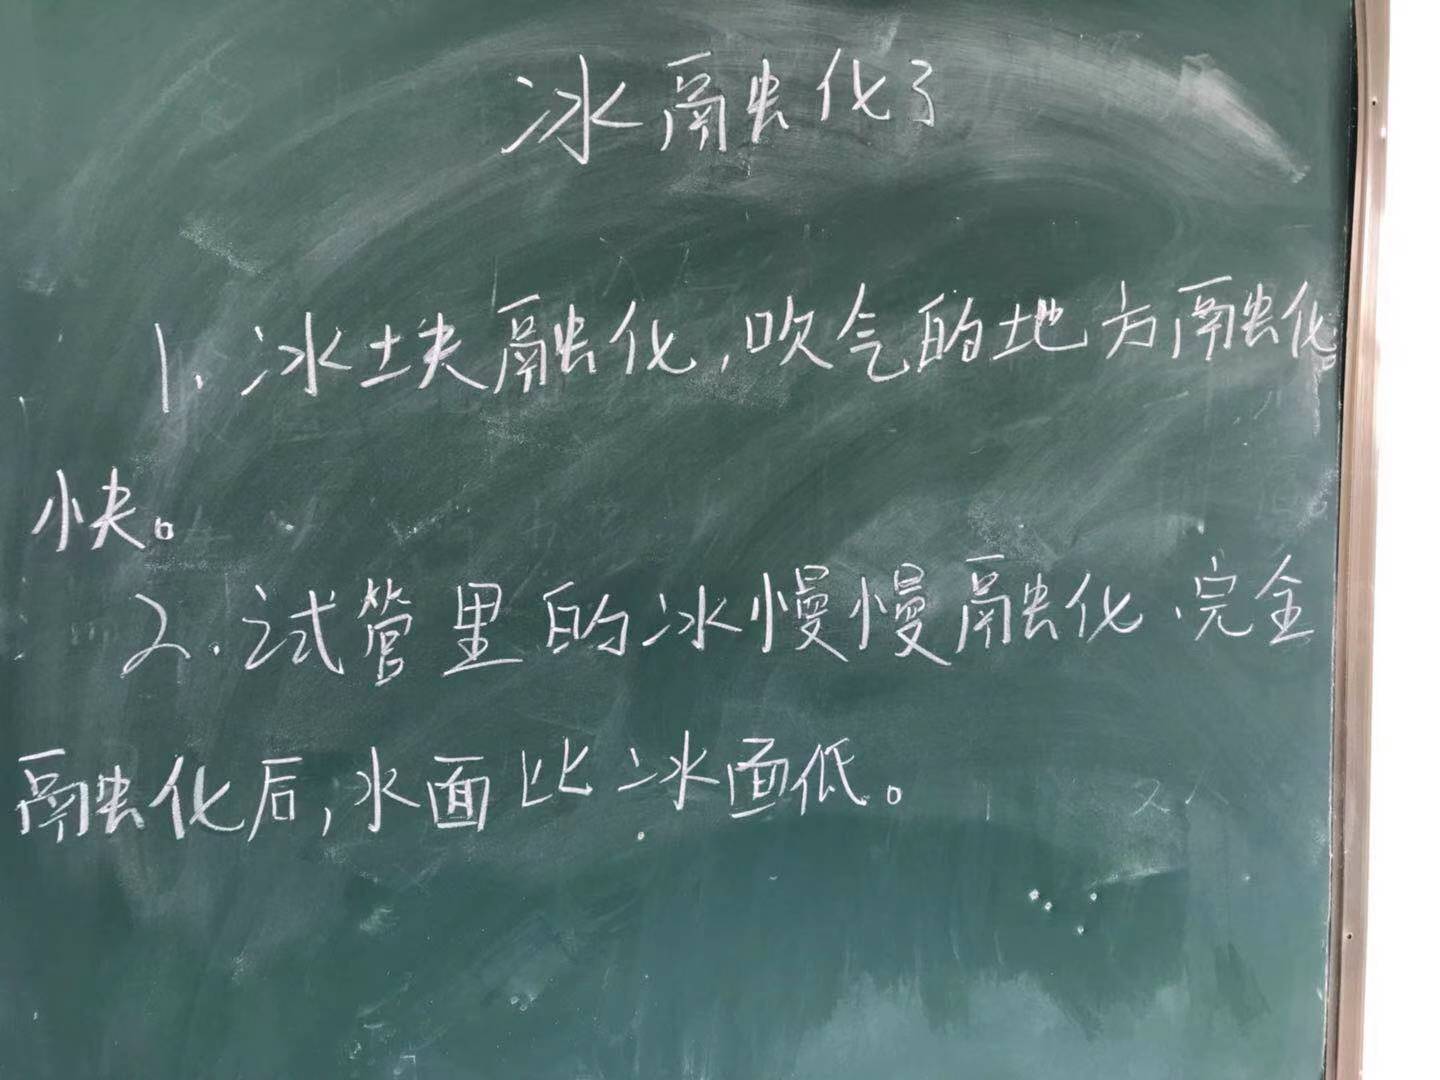 冰融化了
1.冰块融化,吹气的地方融化
快。
2.试管里的冰慢慢融化.完全
融化后,水面比冰面低。